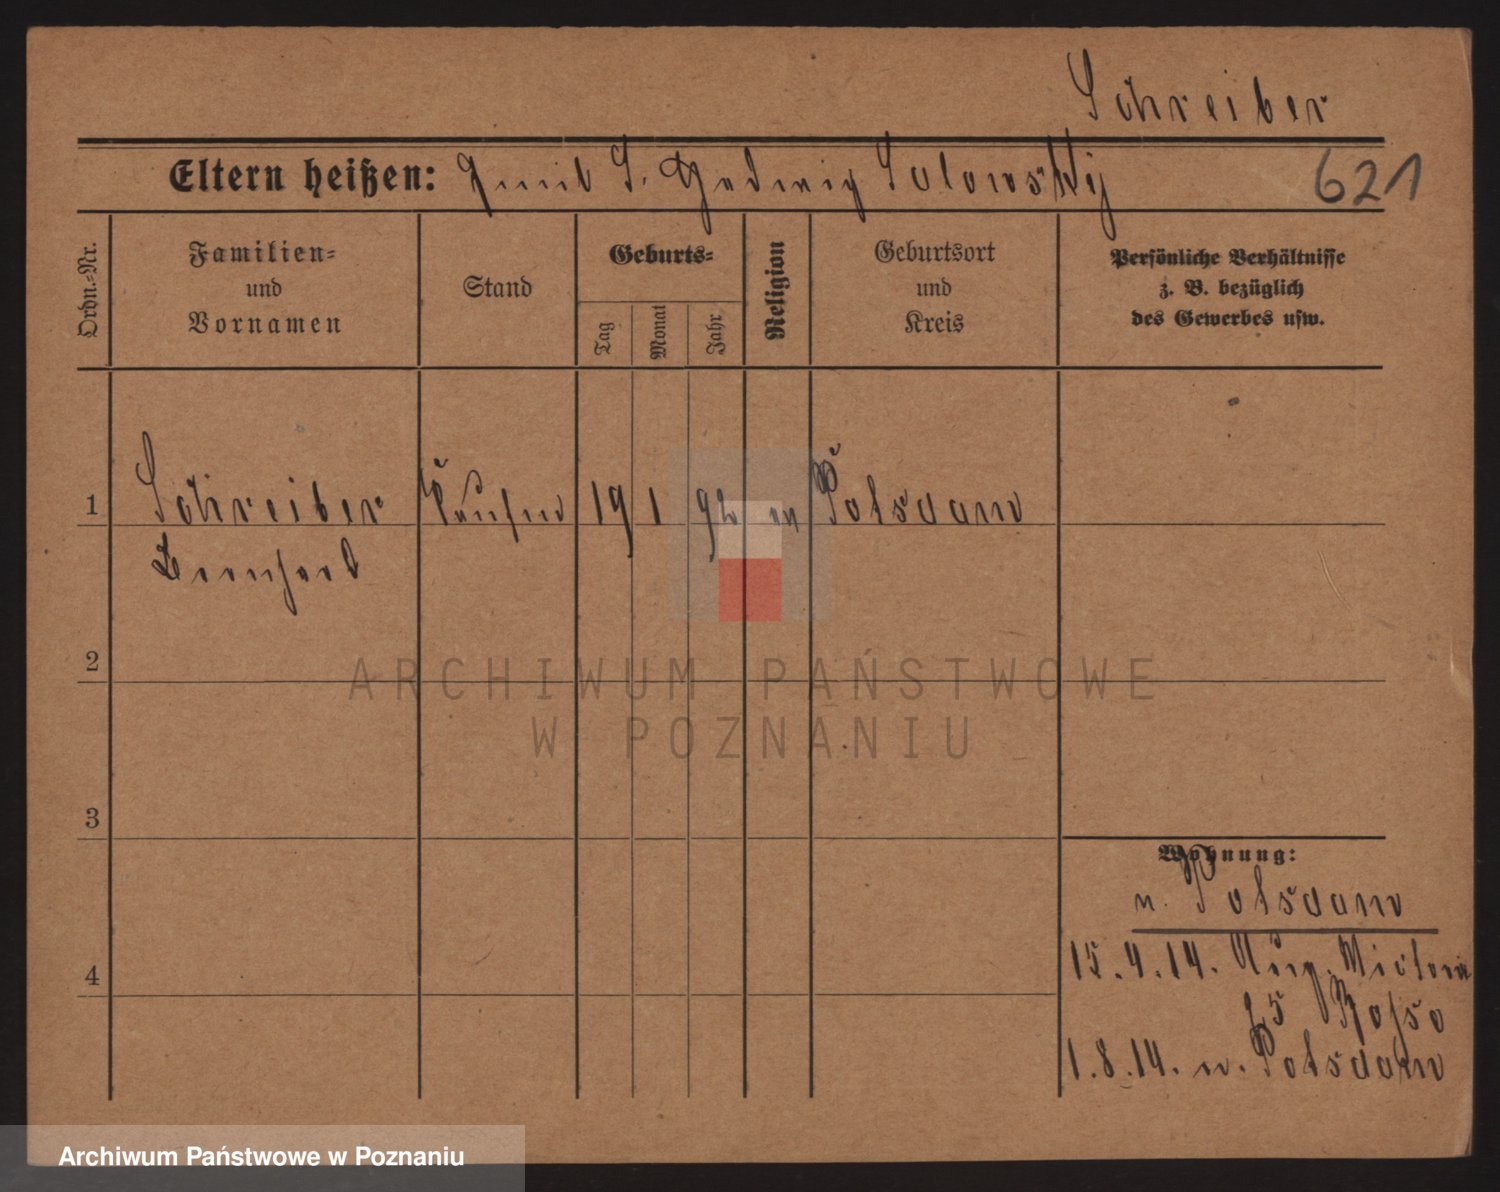 Schreiber
Eltern heißen: Emil S. Hedwig Solowskij 621
Ordn.-Nr.
Familien-
und
Vornamen
Stand
Geburts-
Tag
Monat
Jahr
Religion
Geburtsort
und
Kreis
Persönliche Verhältnisse
z. B. bezüglich
des Gewerbes usw.
1 Schreiber Kaufm 19 1 92 ev Potsdam
Bernhard
2
3
4
Wohnung:
n. Potsdam
15.4.14. Aug. Victoria
25
1.8.14. n. Potsdam
ARCHIWUM PAŃSTWOWE
W POZNANIU
Archiwum Państwowe w Poznaniu